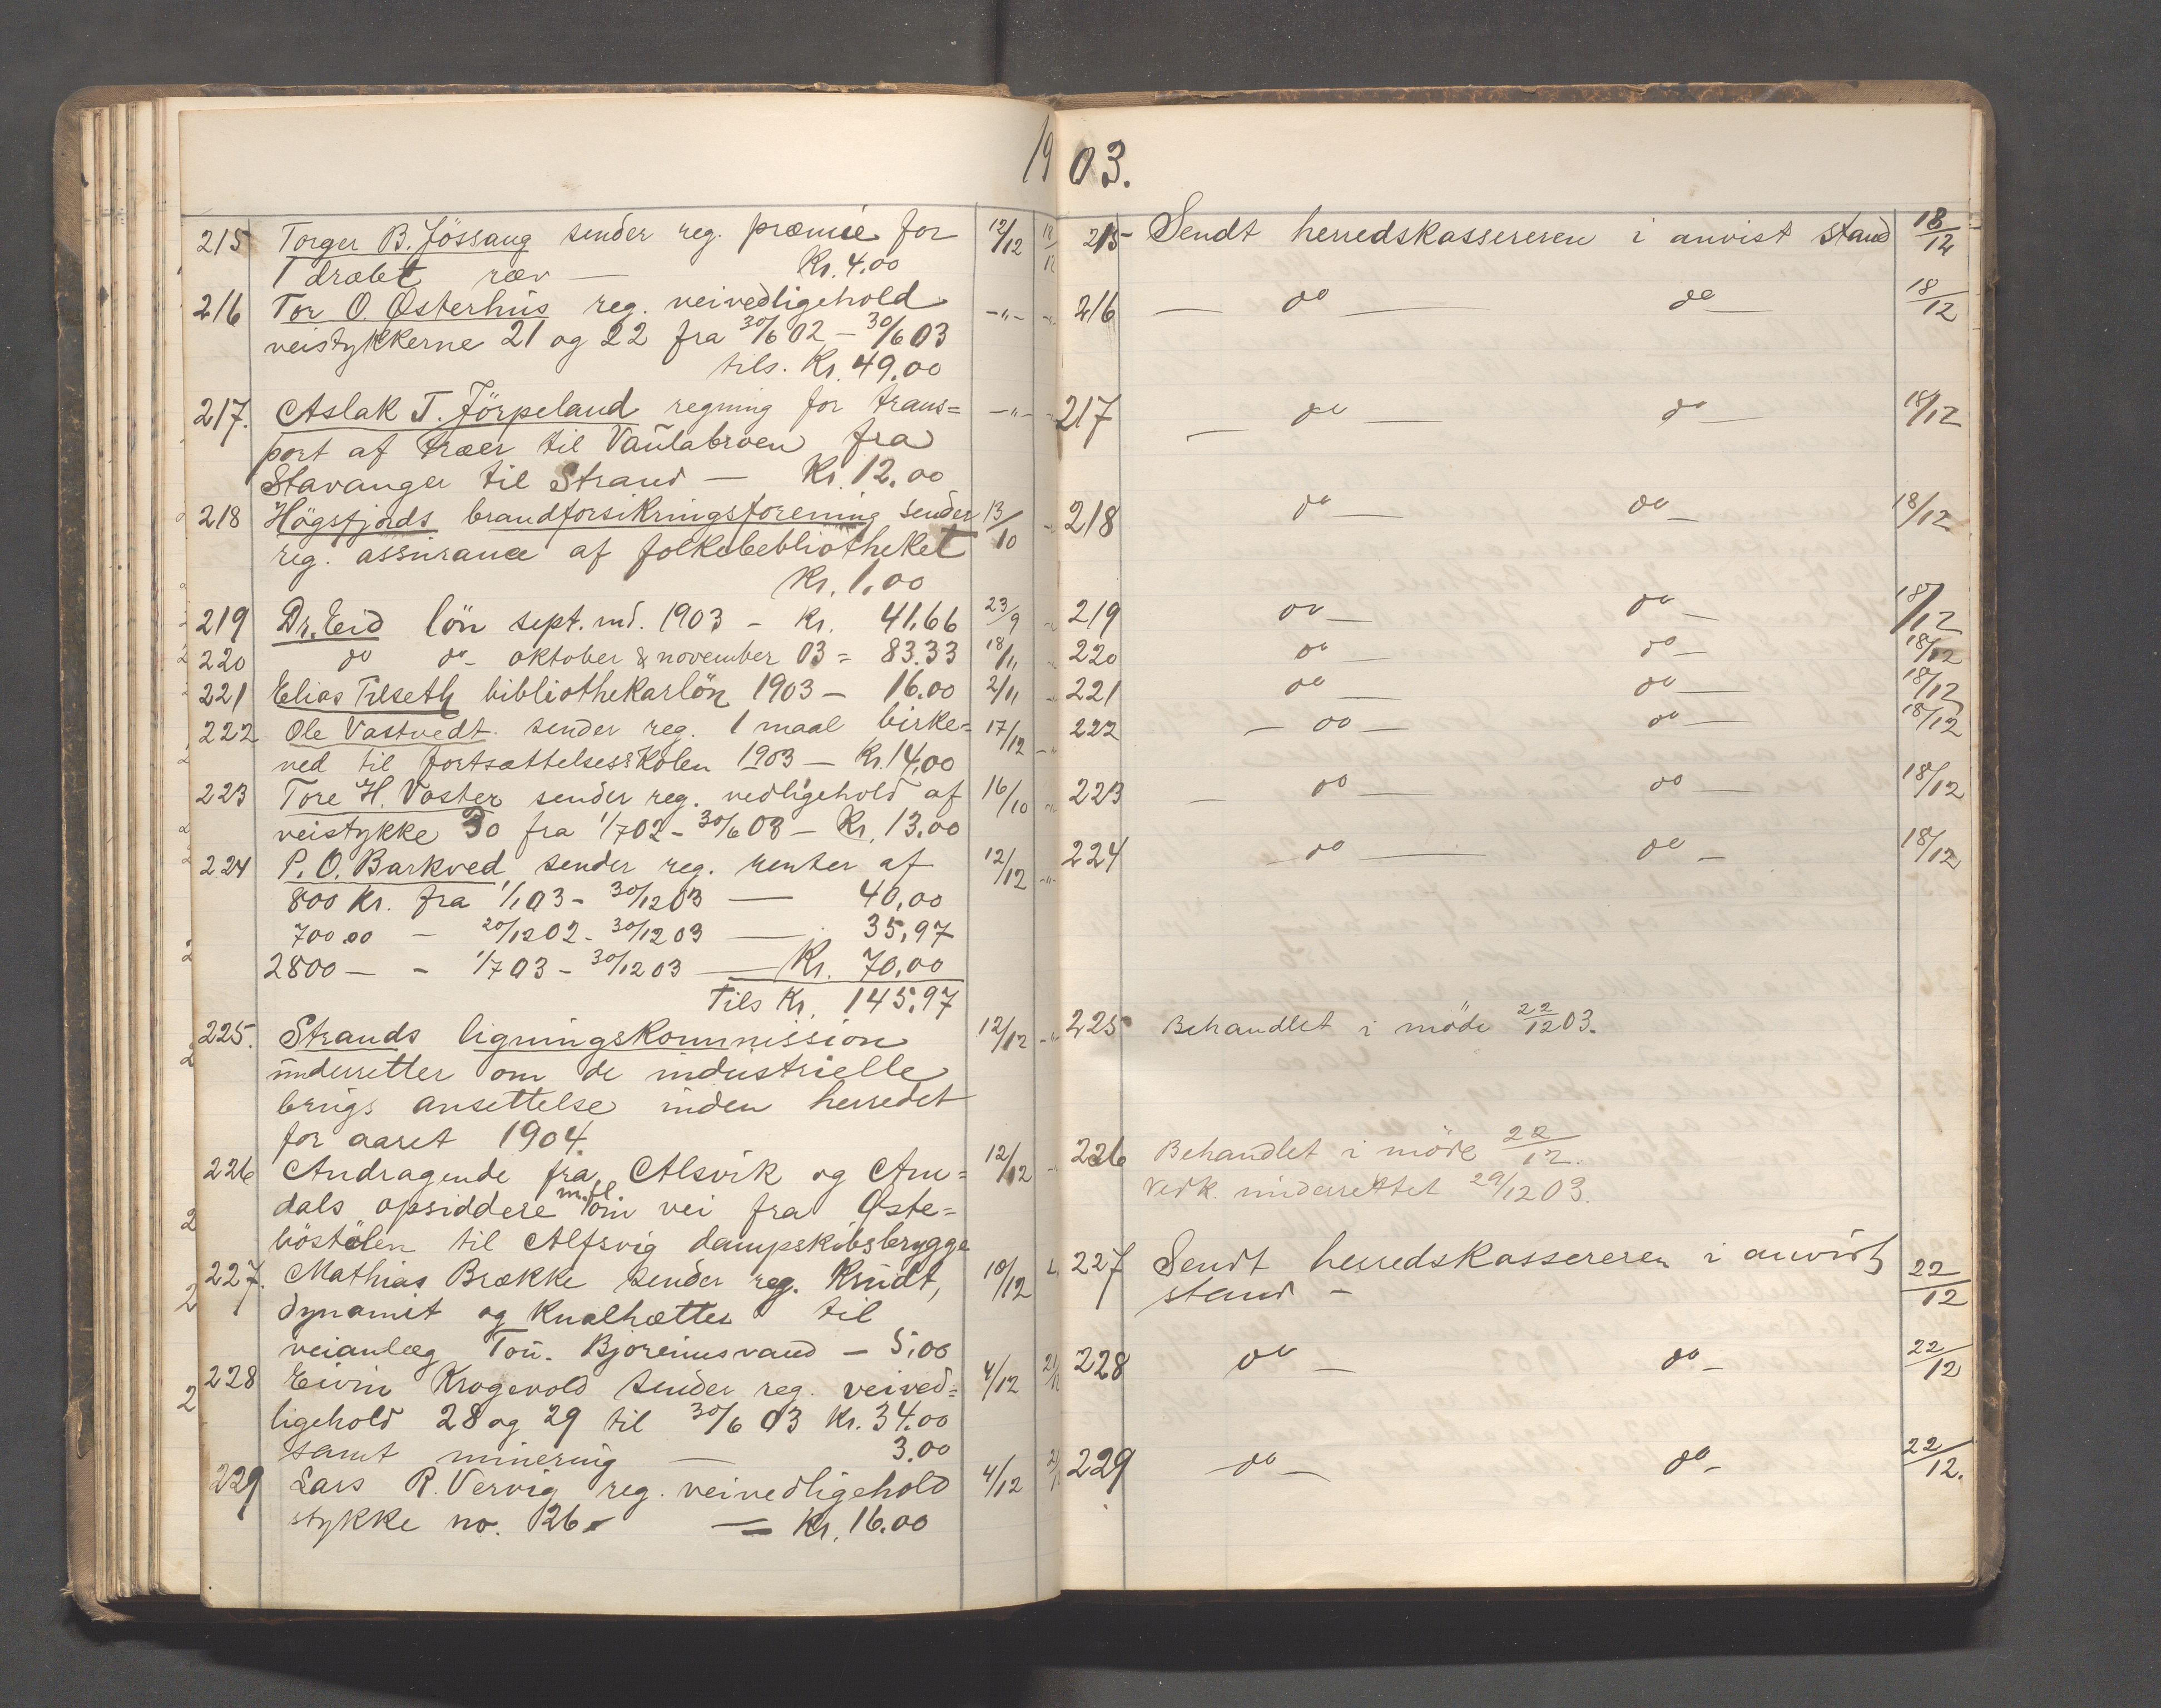 1903.
215 Torger B. Jössang sender reg. præmie for 12/12 18/12
1 dræbt ræv — Kr. 4.00
216 Tor O. Østerhus reg. veivedligehold -"-
veistykkerne 21 og 22 fra 30/6 02 - 30/6 03
tils. Kr. 49.00
217. Aslak T. Jörpeland regning for trans= -"-
port af træer til Vaulabroen fra
Stavanger til Strand — Kr. 12.00
218 Högsfjords brandforsikringsforening sender 13/10
reg. assurance af folkebebliotheket
Kr. 1.00
219 Dr. Eid lön sept. md. 1903 - Kr. 41.66 23/9
220 do do- oktober & november 03 = 83.33 18/11
221 Elias Tilseth bibliothekarlön 1903 — 16.00 2/11
222 Ole Vastvedt. sender reg. 1 maal birke= 17/12
ved til fortsættelsesskolen 1903 — Kr. 14.00
223 Tore H. Voster sender reg. vedligehold af 16/10
veistykke 30 fra 1/7 02 - 30/6 03 — Kr. 13.00
224 P. O. Barkved sender reg. renter af 12/12 -"-
800 Kr. fra 1/1 03 - 30/12 03 — 40,00
700.00 — 20/12 02 - 30/12 03 — 35,97
2800 — - 1/7 03 - 30/12 03 — Kr. 70,00
Tils Kr. 145.97
225. Strands ligningskommission 12/12 -"-
underretter om de industrielle
brugs ansettelse inden herredet
for aaret 1904.
226 Andragende fra Alsvik og Am= 12/12
dals opsiddere m.fl. om vei fra Øste=
böstölen til Alfsvig dampskibsbrygge
227. Mathias Brække sender reg. Krudt, 18/12
dynamit og Knalhætter til
veianlæg Tou. Björeimsvand — 5.00
228 Eivin Krogevold sender reg. veived= 4/12 21/12
ligehold 28 og 29 til 30/6 03 Kr. 34.00
samt minering — 3.00
229 Lars R. Vervig reg. veivedligehold 4/12
stykke no. 26. — Kr. 16.00
215 Sendt herredskassereren i anvist stand 18/12
216 — do — do — 18/12
217 — do — do — 18/12
218 do — do — 18/12
219 do — do — 18/12
220 do — do — 18/12
221 do — do — 18/12
222 — do — do — 18/12
223 — do — do — 18/12
224 — do — do — 18/12
225 Behandlet i möde 22/12 03.
226 Behandlet i möde 22/12.
Vedk. underrettet 29/12 03.
227 Sendt herredskassereren i anvist
stand - 22/12
228 do — do - 22/12
229 — do — do - 22/12.